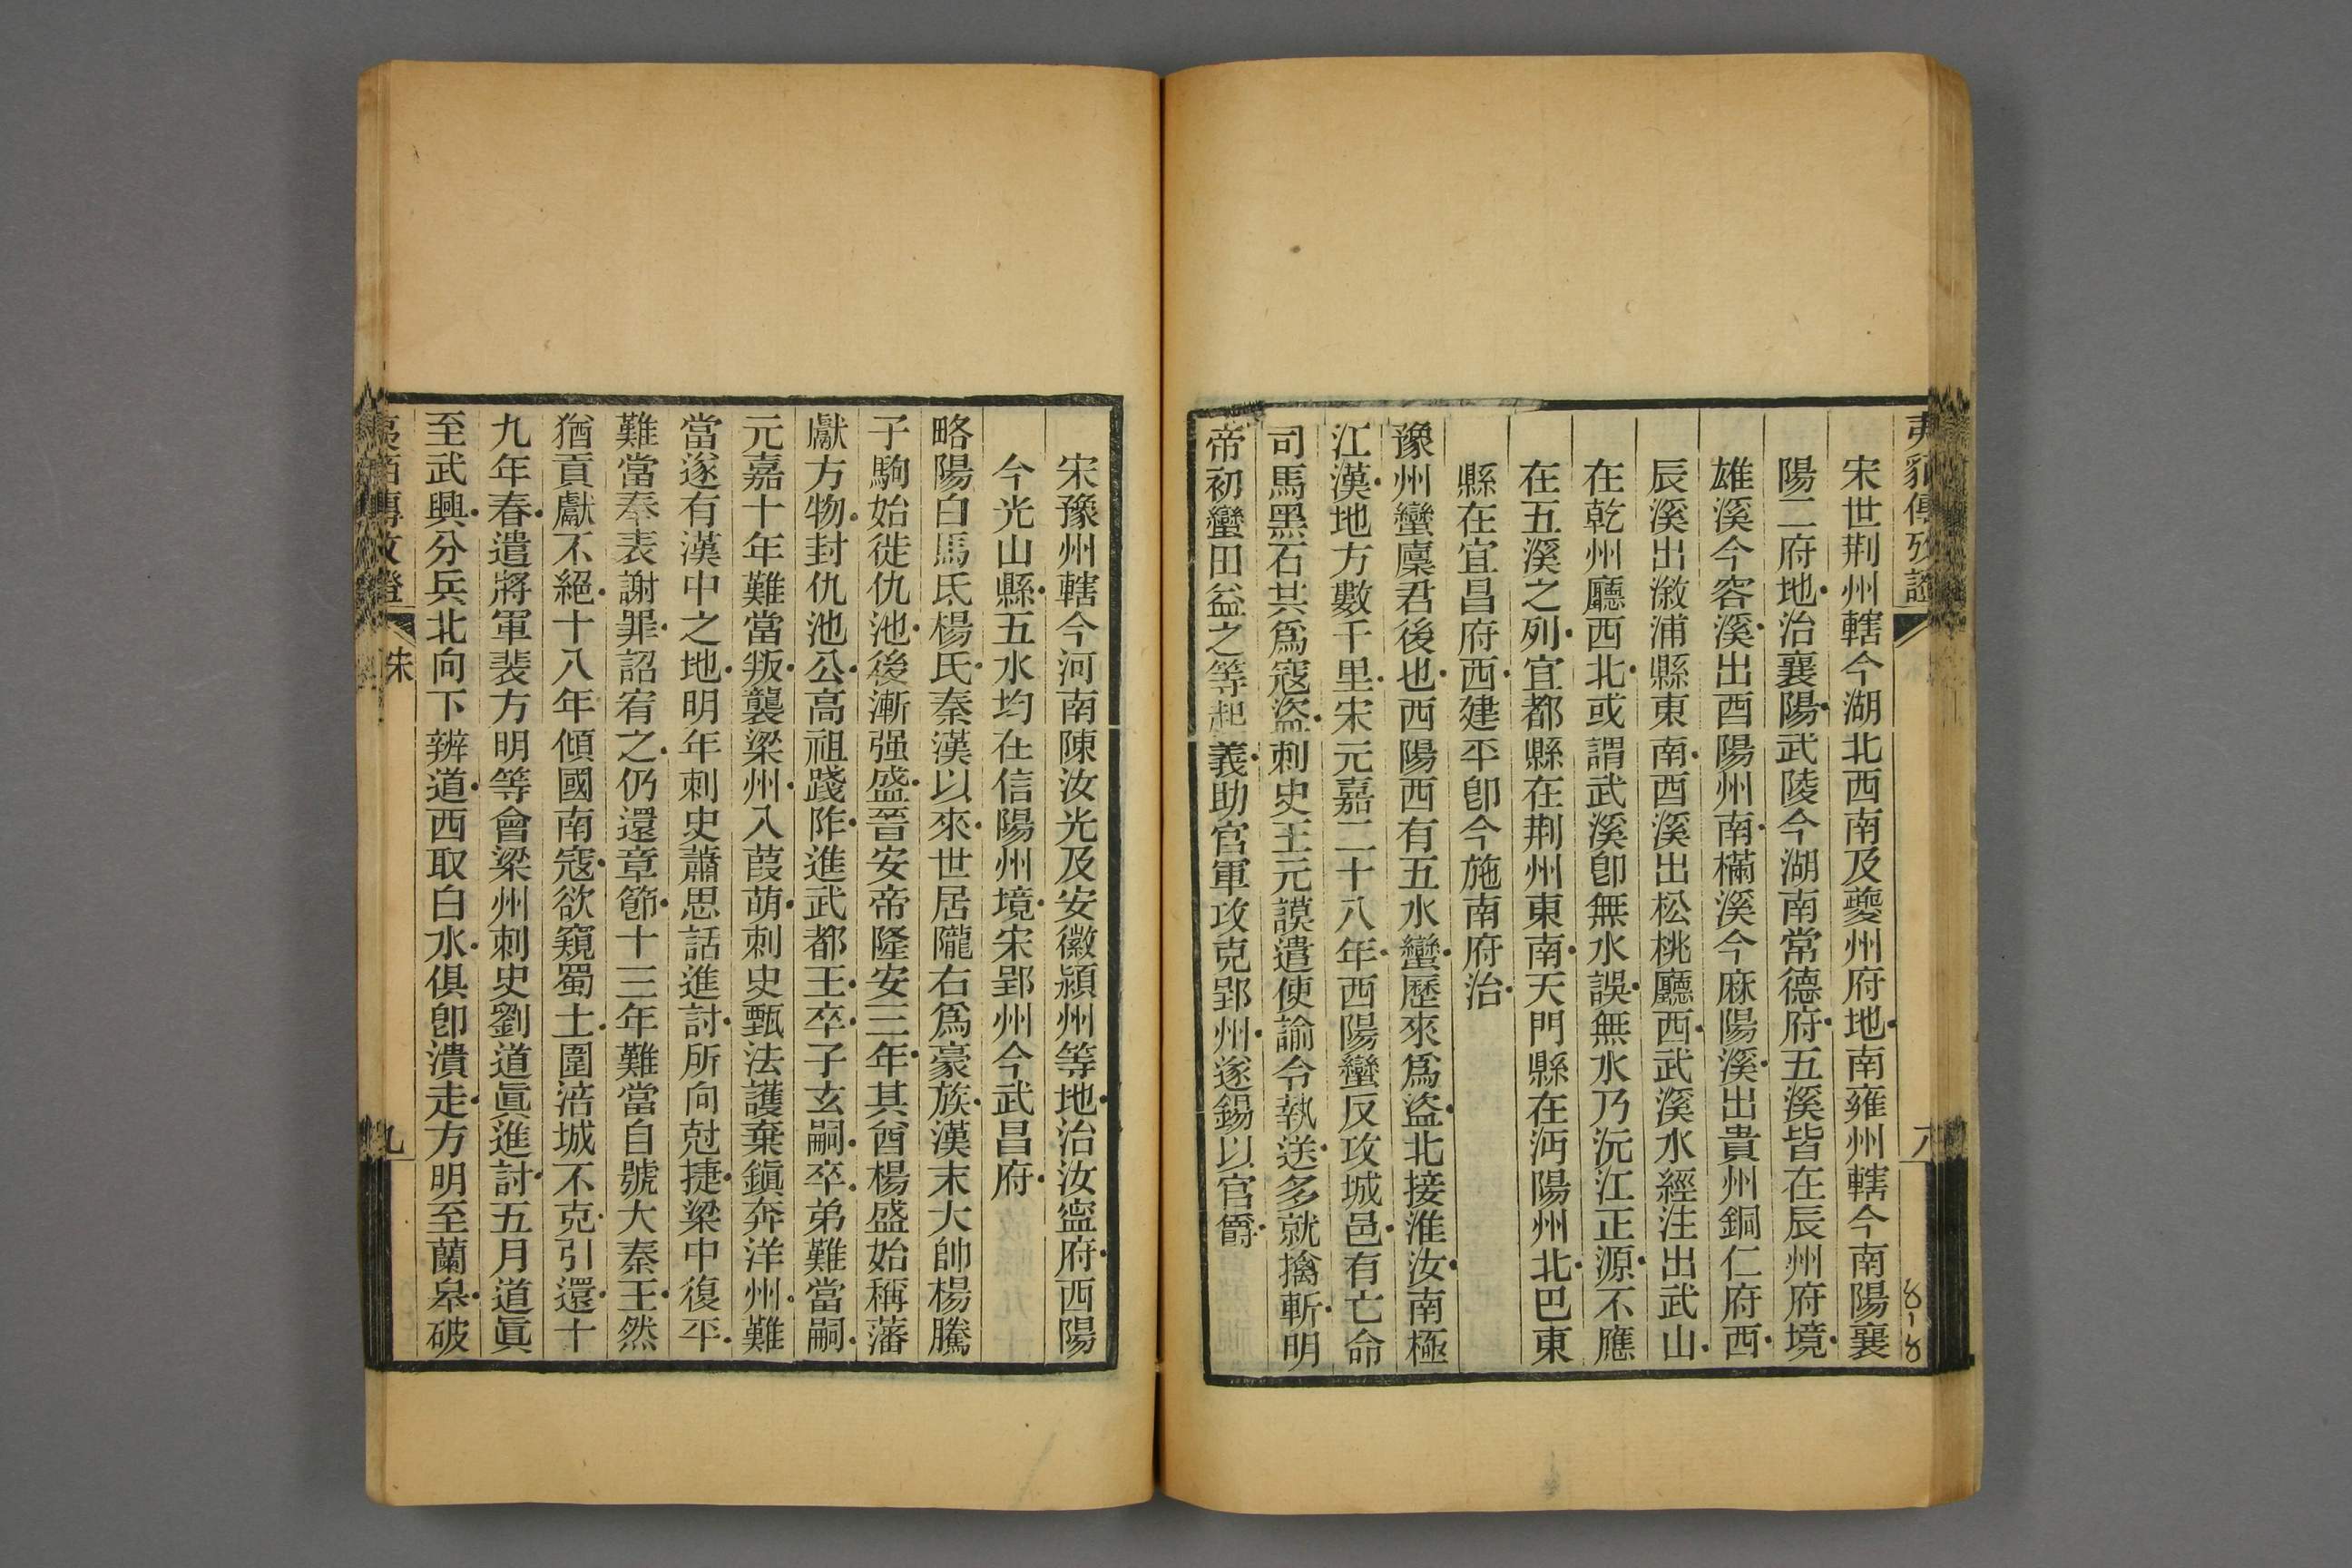 夷貊傳攷證
八
8-8
宋世荆州轄今湖北西南及夔州府地南雍州轄今南陽襄
陽二府地治襄陽武陵今湖南常德府五溪皆在辰州府境
雄溪今容溪出酉陽州南樠溪今麻陽溪出貴州銅仁府西
辰溪出漵浦縣東南酉溪出松桃廳西武溪水經注出武山
在乾州廳西北或謂武溪卽無水誤無水乃沅江正源不應
在五溪之列宜都縣在荆州東南天門縣在沔陽州北巴東
縣在宜昌府西建平卽今施南府治
豫州蠻廩君後也西陽西有五水蠻歷來爲盜北接淮汝南極
江漢地方數千里宋元嘉二十八年西陽蠻反攻城邑有亡命
司馬黑石共爲寇盜刺史王元謨遣使諭令執送多就擒斬明
帝初蠻田益之等起義助官軍攻克郢州遂錫以官爵
宋豫州轄今河南陳汝光及安徽潁州等地治汝寍府西陽
今光山縣五水均在信陽州境宋郢州今武昌府
略陽白馬氐楊氏秦漢以來世居隴右爲豪族漢末大帥楊騰
子駒始徙仇池後漸强盛晉安帝隆安三年其酋楊盛始稱藩
獻方物封仇池公高祖踐阼進武都王卒子玄嗣卒弟難當嗣
元嘉十年難當叛襲梁州入葭萌刺史甄法護棄鎭奔洋州難
當遂有漢中之地明年刺史蕭思話進討所向尅捷梁中復平
難當奉表謝罪詔宥之仍還章節十三年難當自號大秦王然
猶貢獻不絕十八年傾國南寇欲窺蜀土圍涪城不克引還十
九年春遣將軍裴方明等會梁州刺史劉道眞進討五月道眞
至武興分兵北向下辨道西取白水俱卽潰走方明至蘭皋破
夷貊傳攷證
宋
九